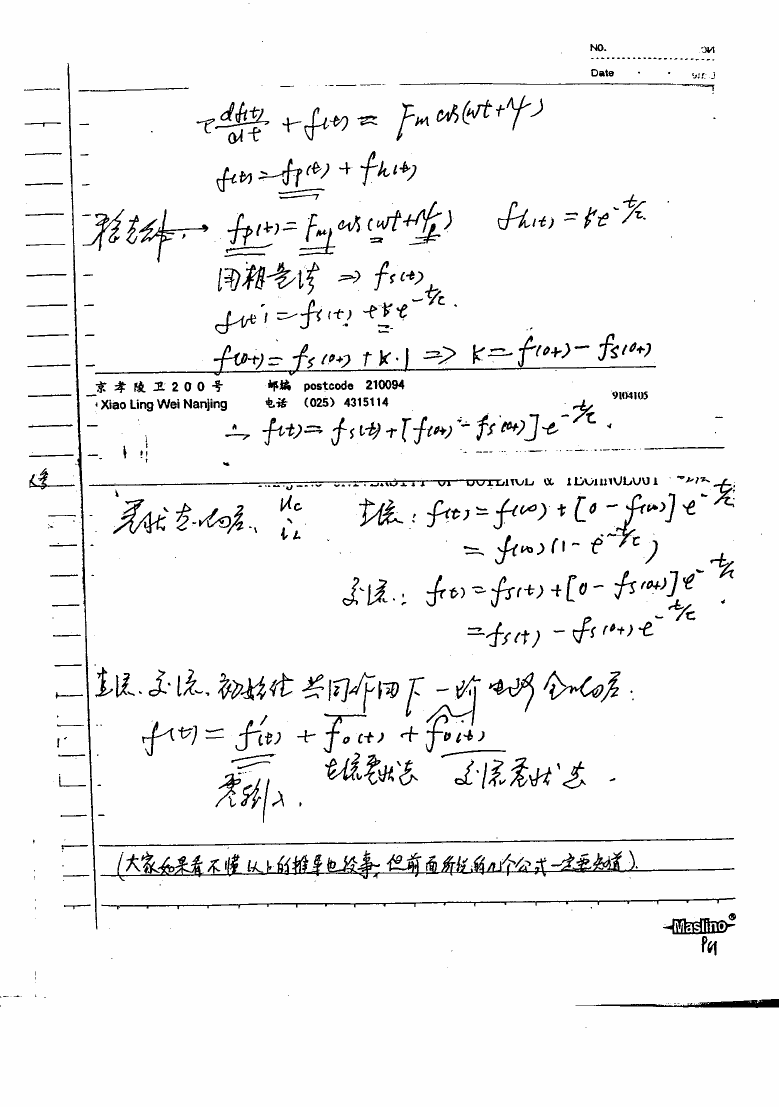 NO.
Date
τ df(t)/dt + f(t) = Fm cos(ωt+ψ)
f(t) = fp(t) + fh(t)
稳态解. → fp(t) = Fmp cos(ωt+ψp) fh(t) = ke^-t/τ
用相量法 ⇒ fs(t)
f(t) = fs(t) + ke^-t/τ.
f(0+) = fs(0+) + k·1 ⇒ k = f(0+) - fs(0+)
京孝陵卫200号 邮编 postcode 210094
Xiao Ling Wei Nanjing 电话 (025) 4315114 9104105
∴ f(t) = fs(t) + [f(0+) - fs(0+)]e^-t/τ.
UNIVERSITY OF SCIENCE & TECHNOLOGY
零状态响应. uc 直流: f(t) = f(∞) + [0 - f(∞)]e^-t/τ
iL = f(∞)(1 - e^-t/τ)
交流: f(t) = fs(t) + [0 - fs(0+)]e^-t/τ
= fs(t) - fs(0+)e^-t/τ.
直流.交流.初始值共同作用下一阶电路全响应:
f(t) = f'(t) + fo(t) + fo(t)
零输入. 直流零状态 交流零状态.
(大家如果看不懂以上的推导也没事,但前面所说的几个公式一定要知道).
Maslino®